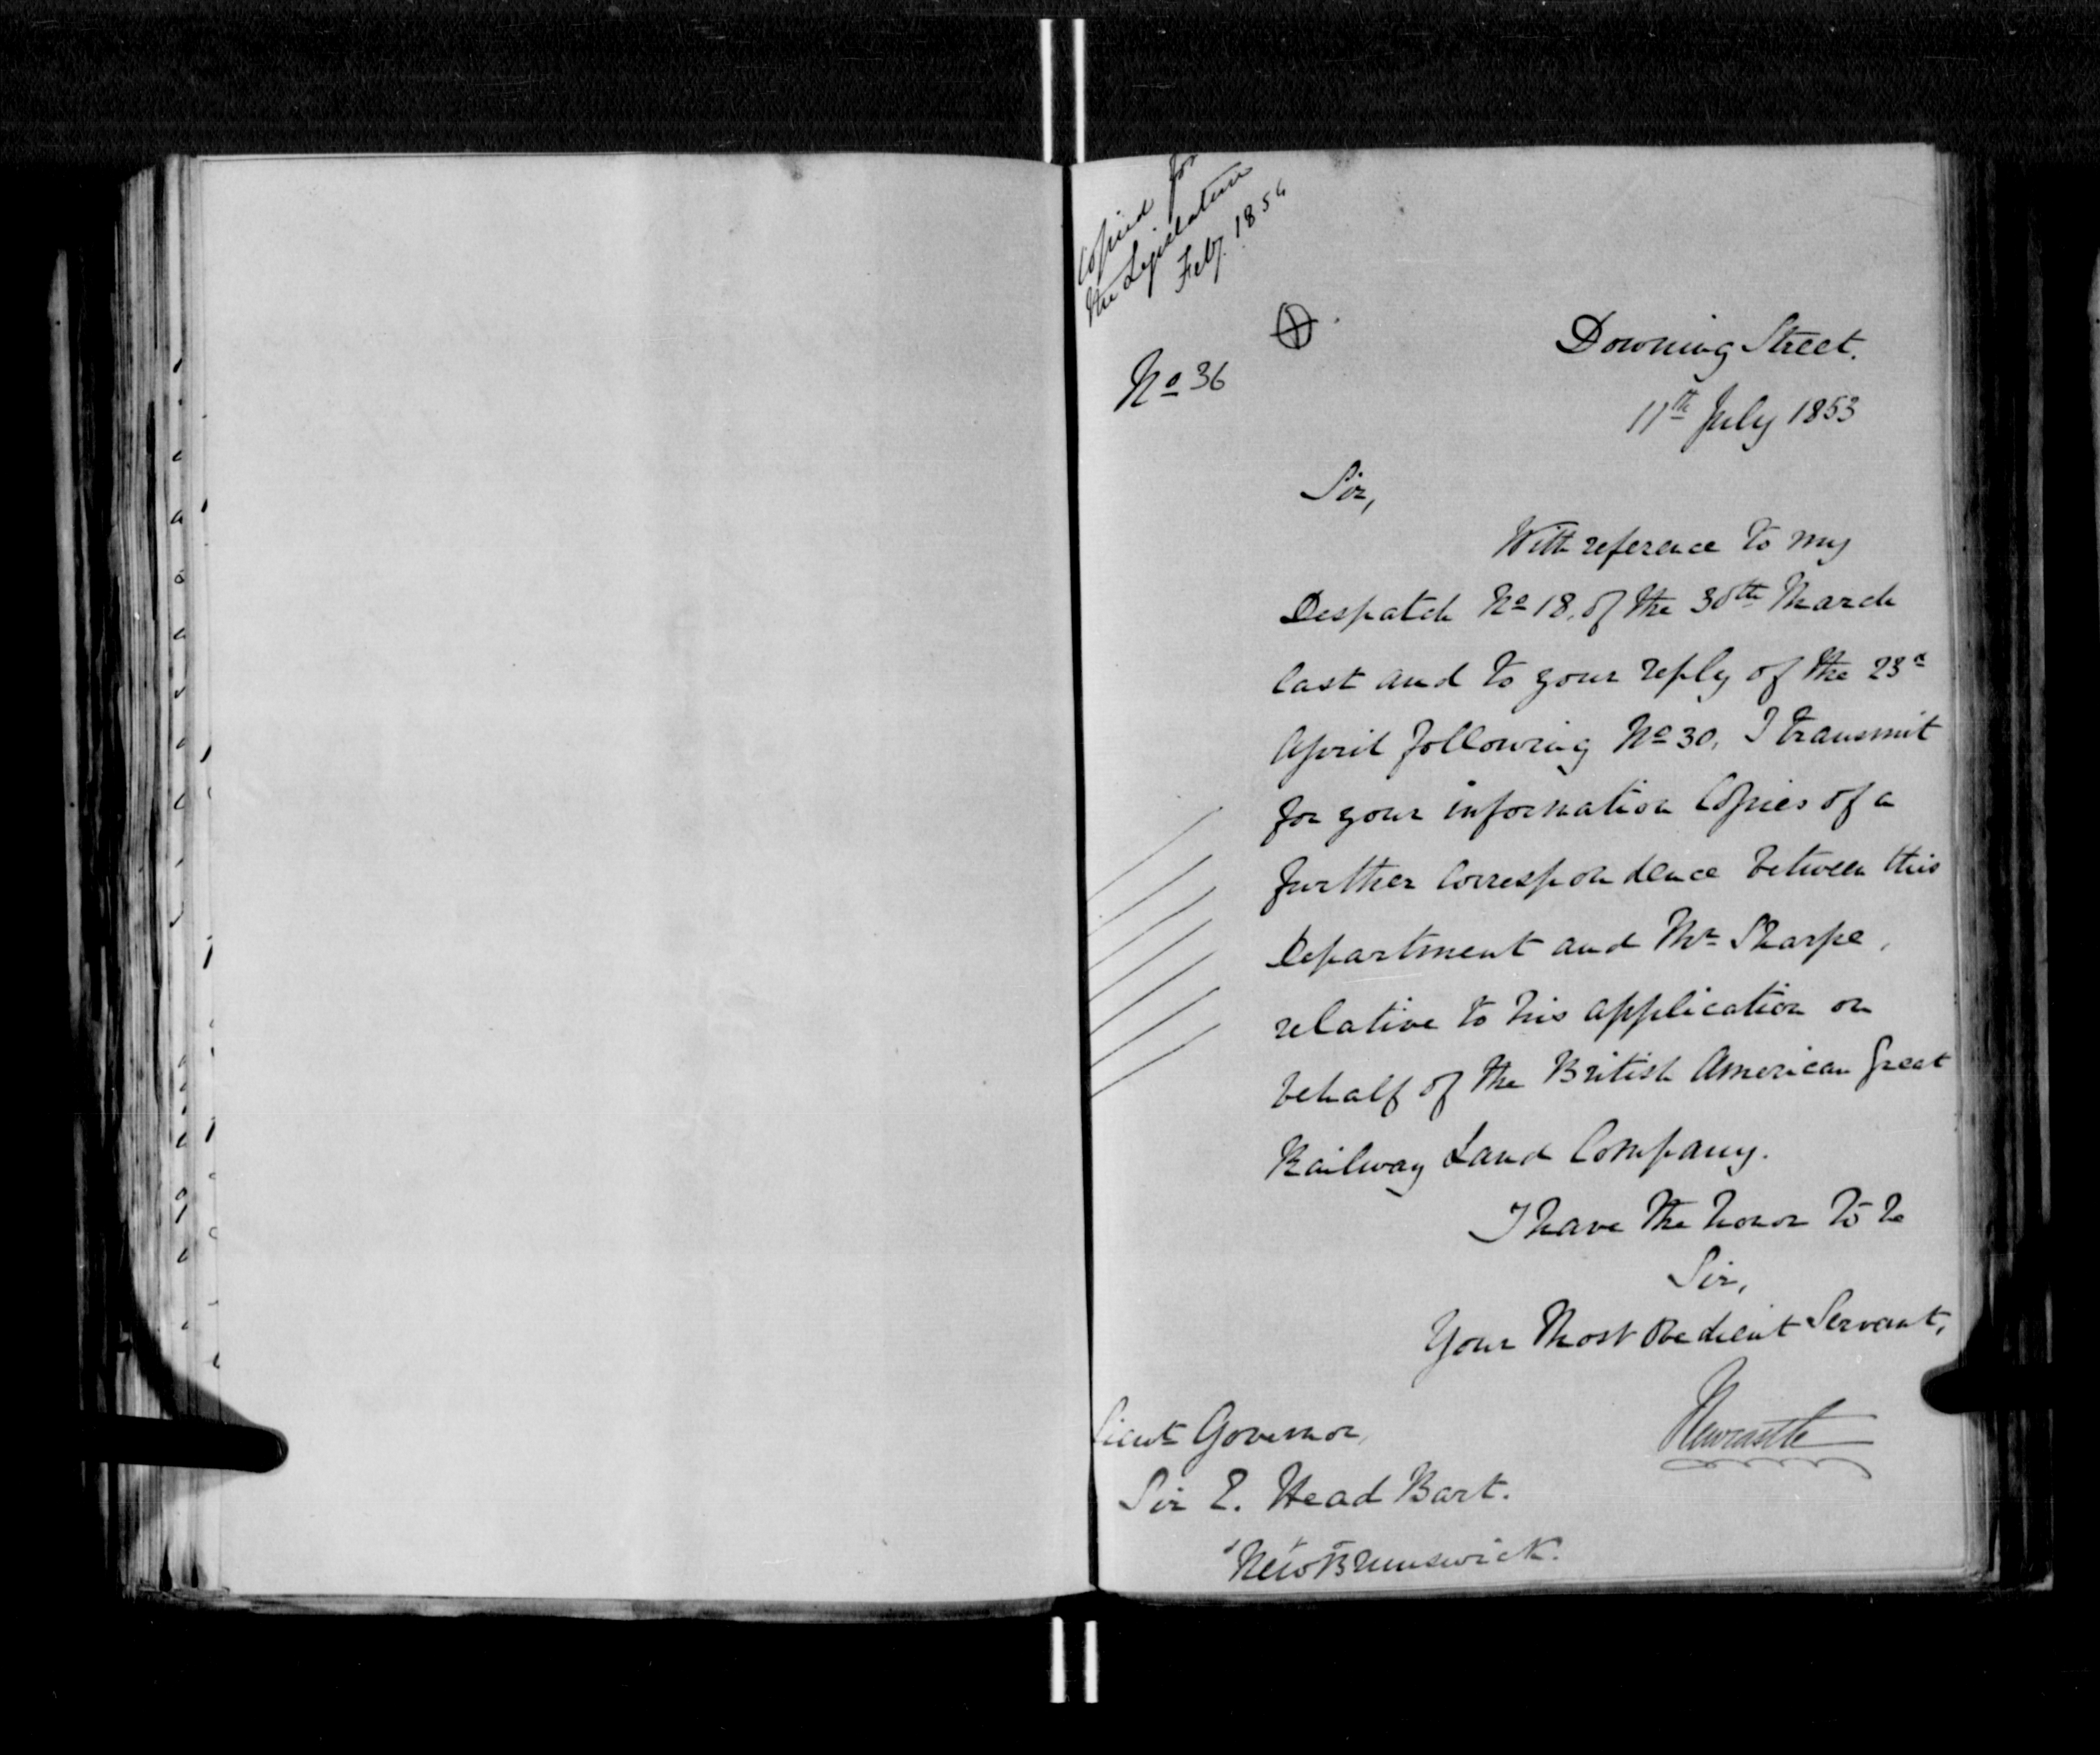 Copied for
the Legislature
Feby. 1854
No 36
Downing Street.
11th July 1853
Sir,
With reference to my
Despatch No 18, of the 30th March
last and to your reply of the 23d
April following No 30, I transmit
for your information Copies of a
further Correspondence between this
Department and Mr Sharpe,
relative to his application on
behalf of the British American Great
Railway Land Company.
I have the honor to be
Sir,
Your Most Obedient Servant,
Newcastle
Lieut Governor
Sir E. Head Bart.
New Brunswick.